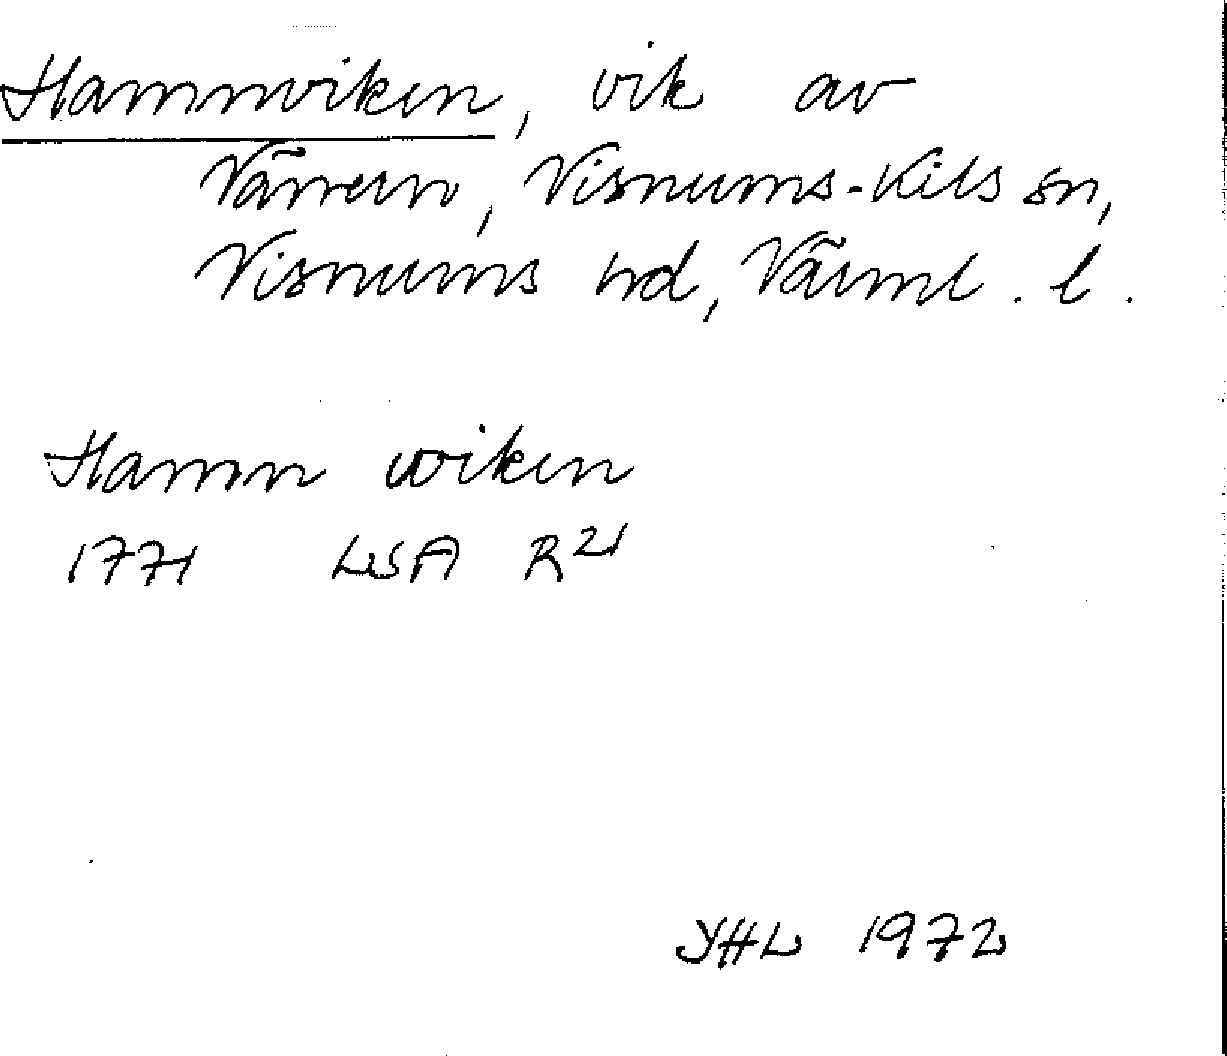 Hamnviken, vik av
Vänern, Visnums-Kils sn,
Visnums hd, Värml. l.
Hamn wiken
1771 LSA R21
YHL 1972